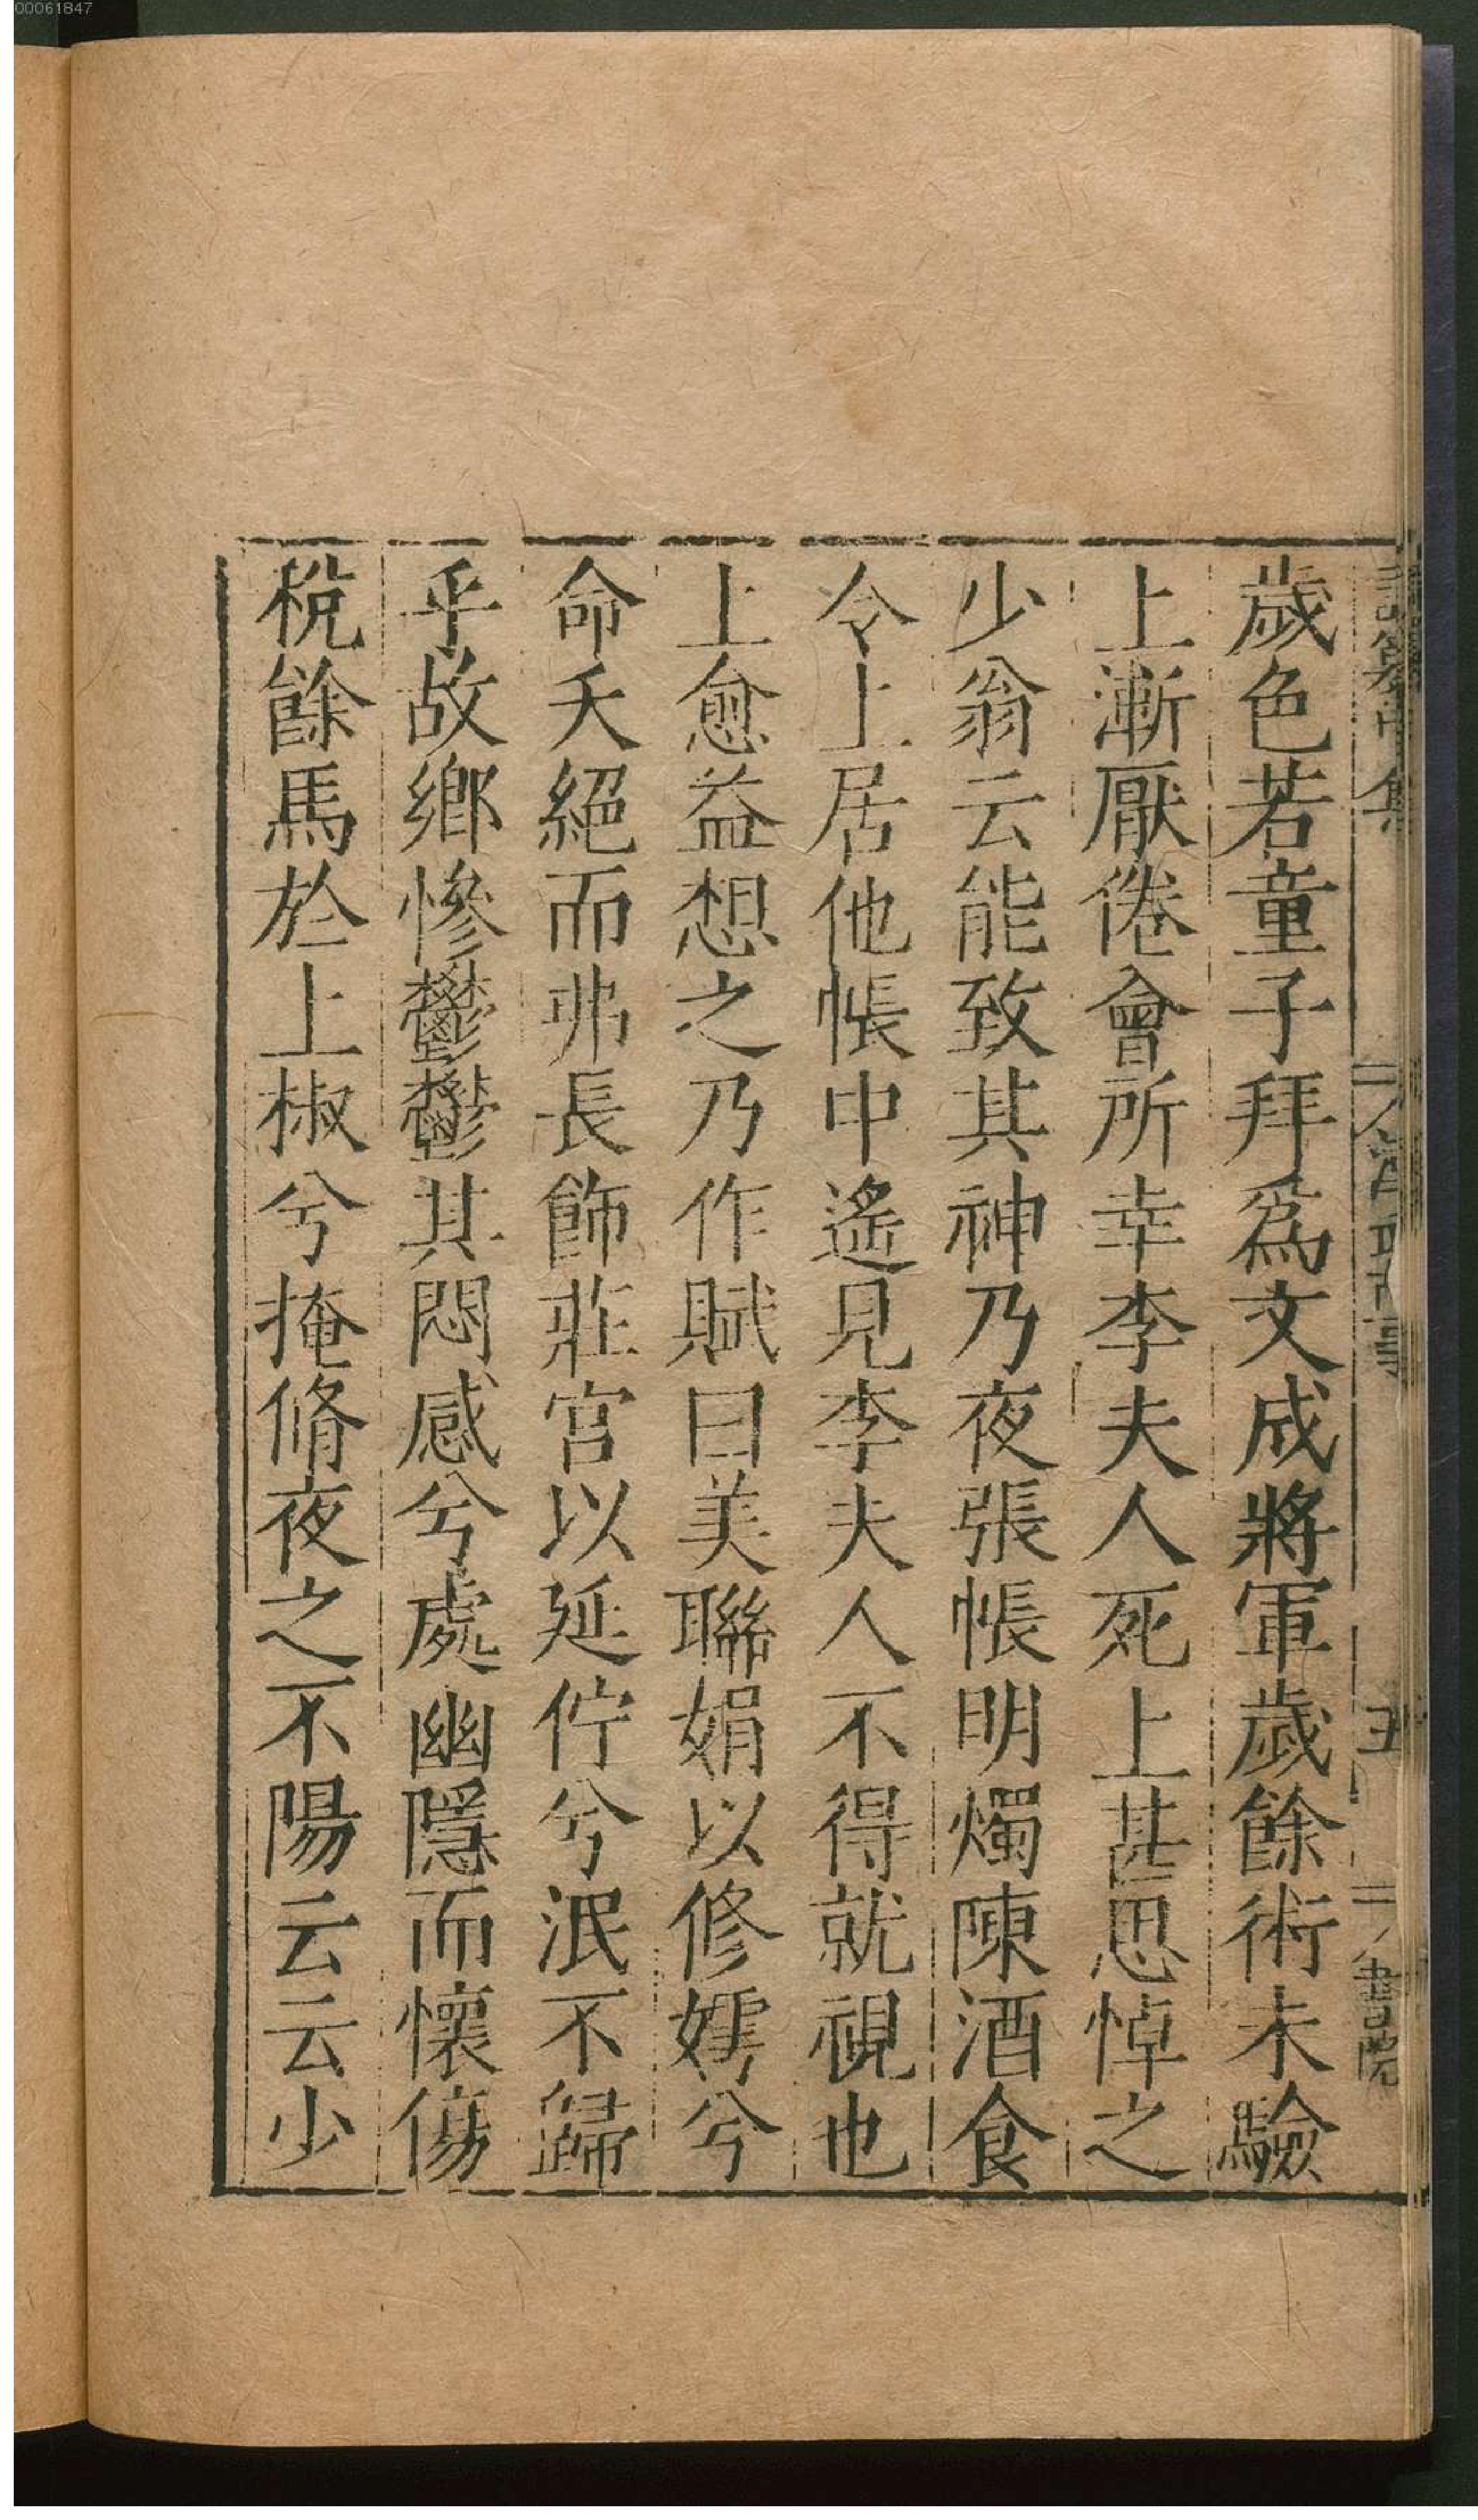 00061847
歲色若童子拜爲文成將軍歲餘術未驗
上漸厭倦會所幸李夫人死上甚思悼之
少翁云能致其神乃夜張帳明燭陳酒食
令上居他帳中遙見李夫人不得就視也
上愈益想之乃作賦曰美聯娟以修嫮兮
命夭絕而弗長飾莊宮以延佇兮泯不歸
乎故鄉慘鬱鬱其悶感兮處幽隱而懷傷
稅餘馬於上椒兮掩脩夜之不陽云云少